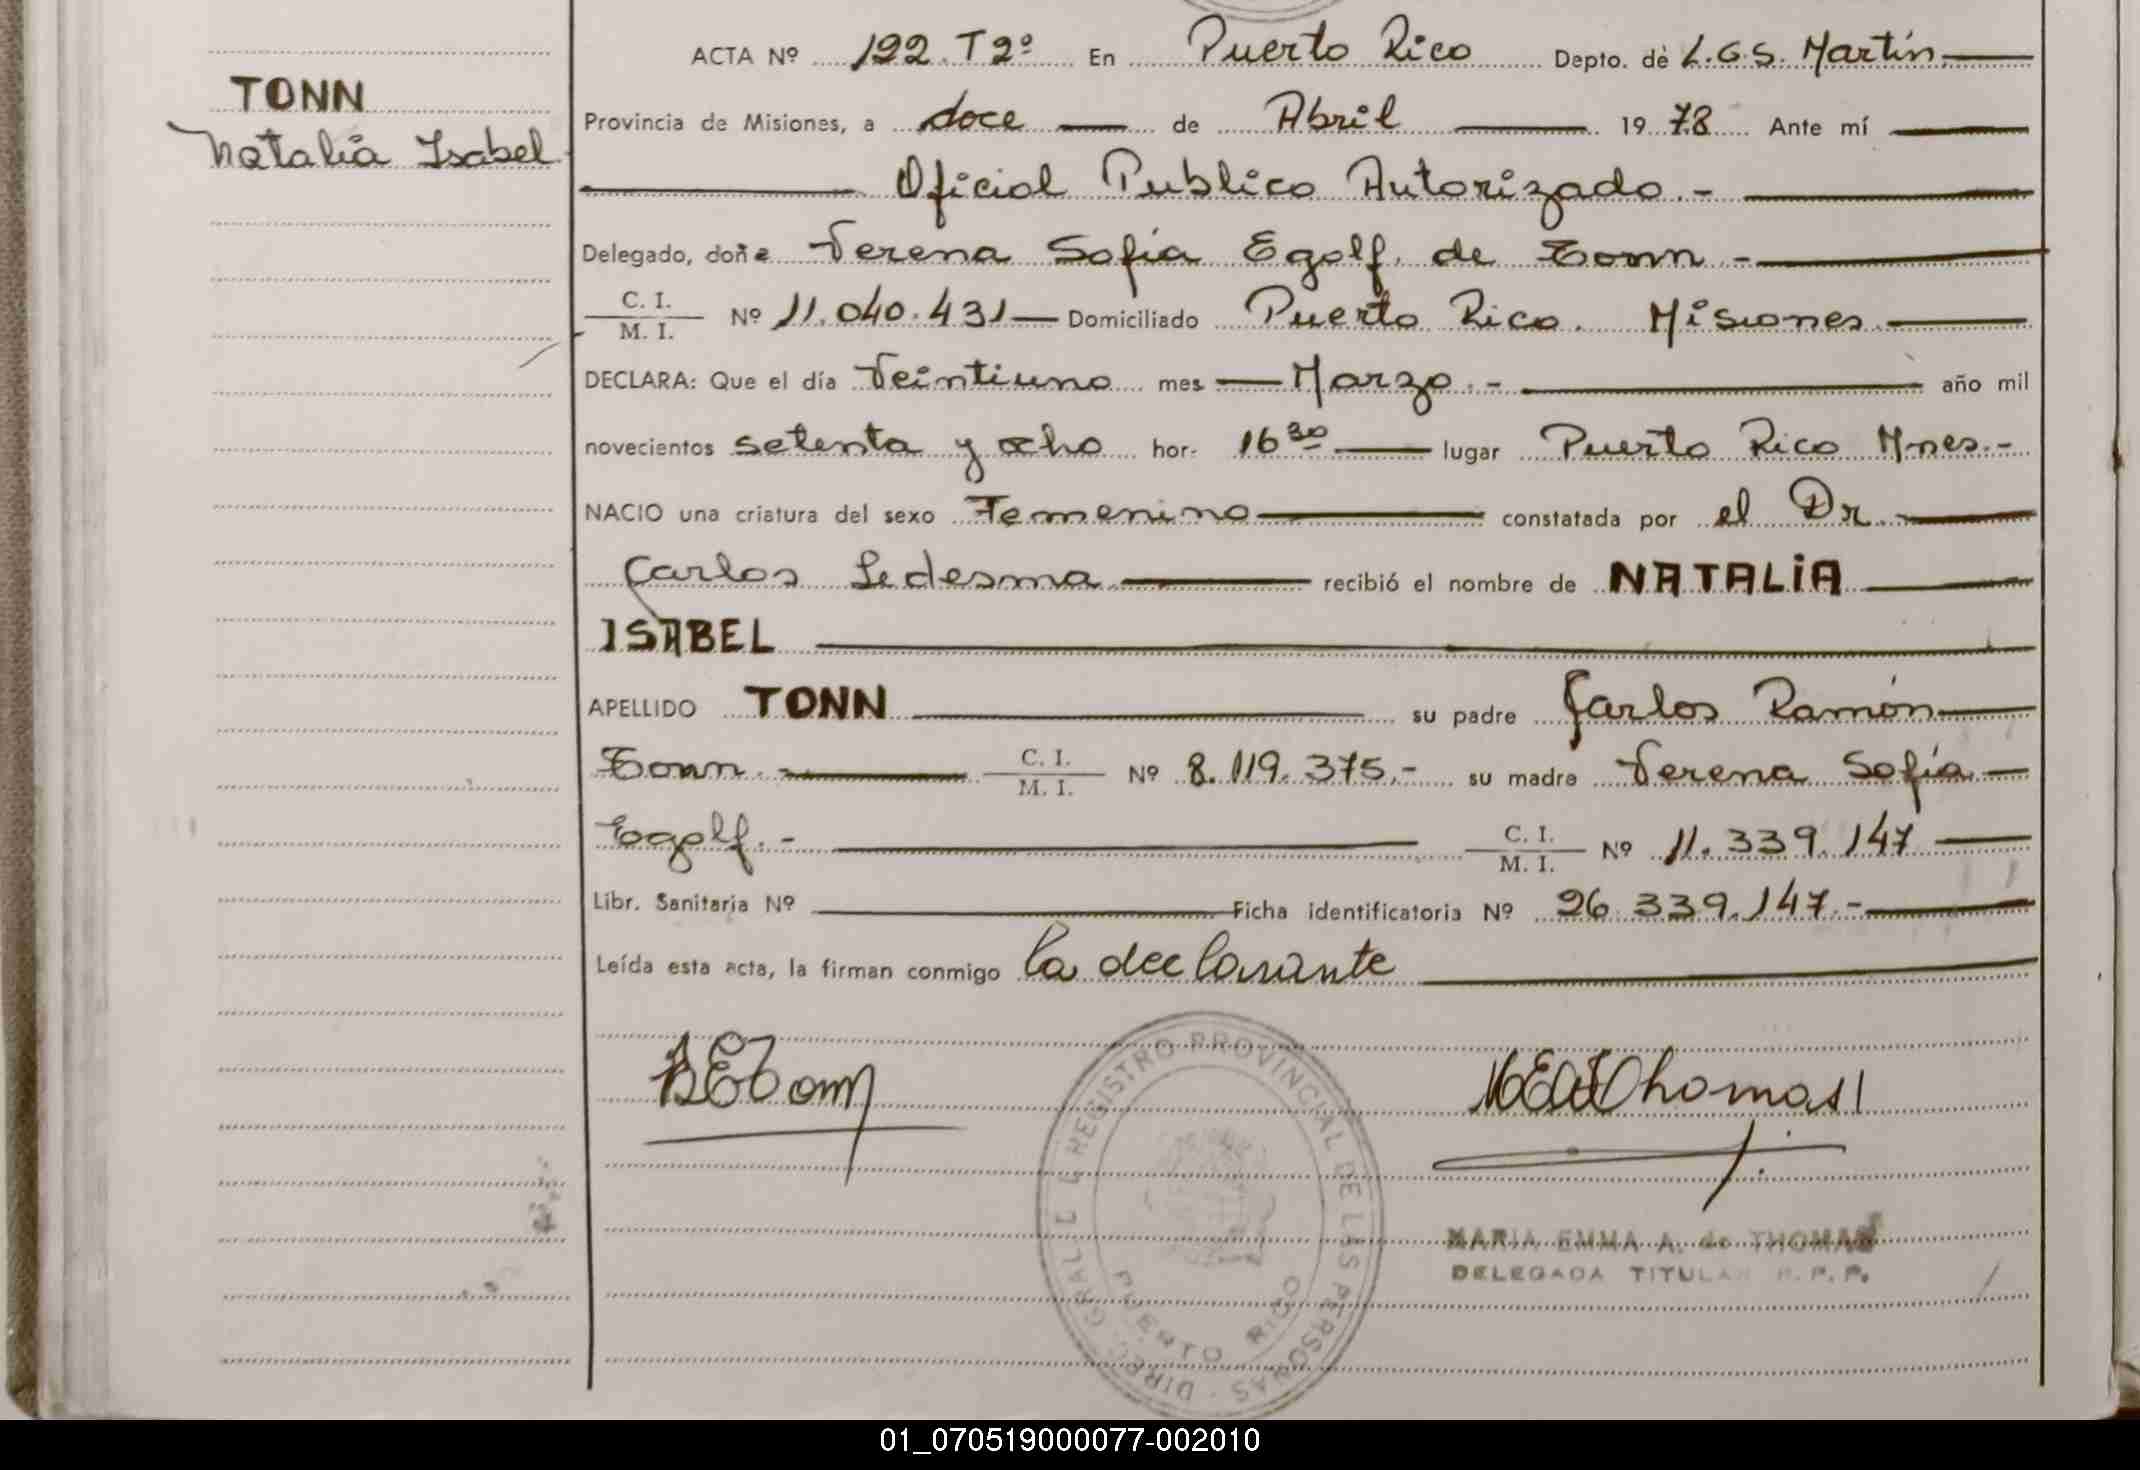 TONN
Natalia Isabel
ACTA Nº 192. T2º En Puerto Rico Depto. de L.G.S. Martín
Provincia de Misiones, a doce de Abril 1978 Ante mí
Oficial Publico Autorizado.-
Delegado, doña Verena Sofía Egolf de Tonn -
C. I. / M. I. Nº 11.040.431 Domiciliado Puerto Rico. Misiones
DECLARA: Que el día Veintiuno mes Marzo.- año mil
novecientos setenta y ocho hor. 16 30 lugar Puerto Rico Mnes.-
NACIO una criatura del sexo Femenino constatada por el Dr.
Carlos Ledesma recibió el nombre de NATALIA
ISABEL
APELLIDO TONN su padre Carlos Ramón
Tonn.- C. I. / M. I. Nº 8.119.375.- su madre Verena Sofía
Egolf.- C. I. / M. I. Nº 11.339.147
Libr. Sanitaria Nº Ficha identificatoria Nº 26.339.147.-
Leída esta acta, la firman conmigo la declarante
DIREC. GRAL. DEL REGISTRO PROVINCIAL DE LAS PERSONAS
PUERTO RICO
MARIA EMMA A. de THOMAS
DELEGADA TITULAR R. P. P.
01_070519000077-002010